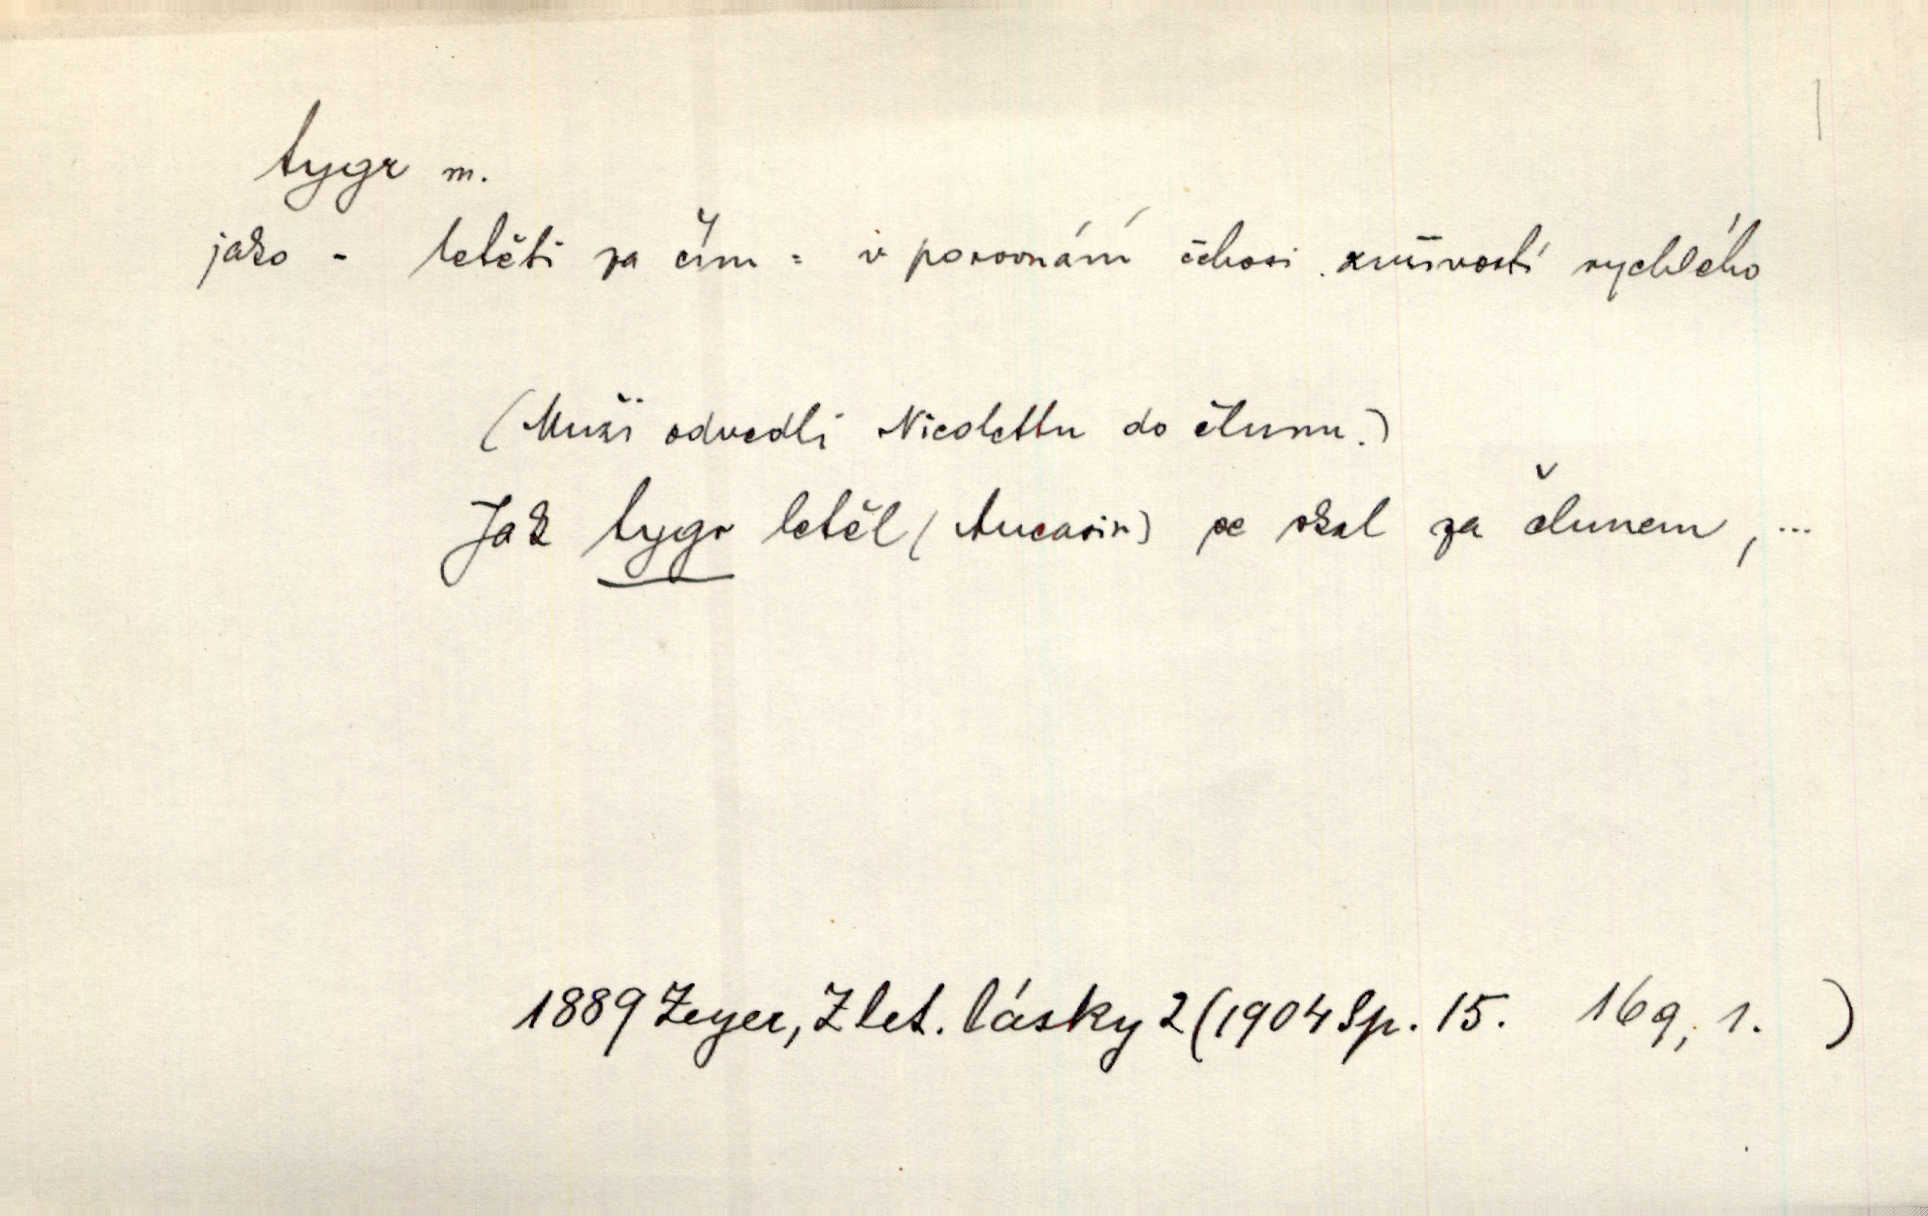 tygr m.
jako - letěti za čím = v porovnání čehosi zuřivostí rychlého
(Muži odvedli Nicolettu do člunu.)
Jak tygr letěl (Aucasin) se skal za člunem, ...
1889 Zeyer, Z let. lásky 2 (1904 Sp. 15. 169, 1. )